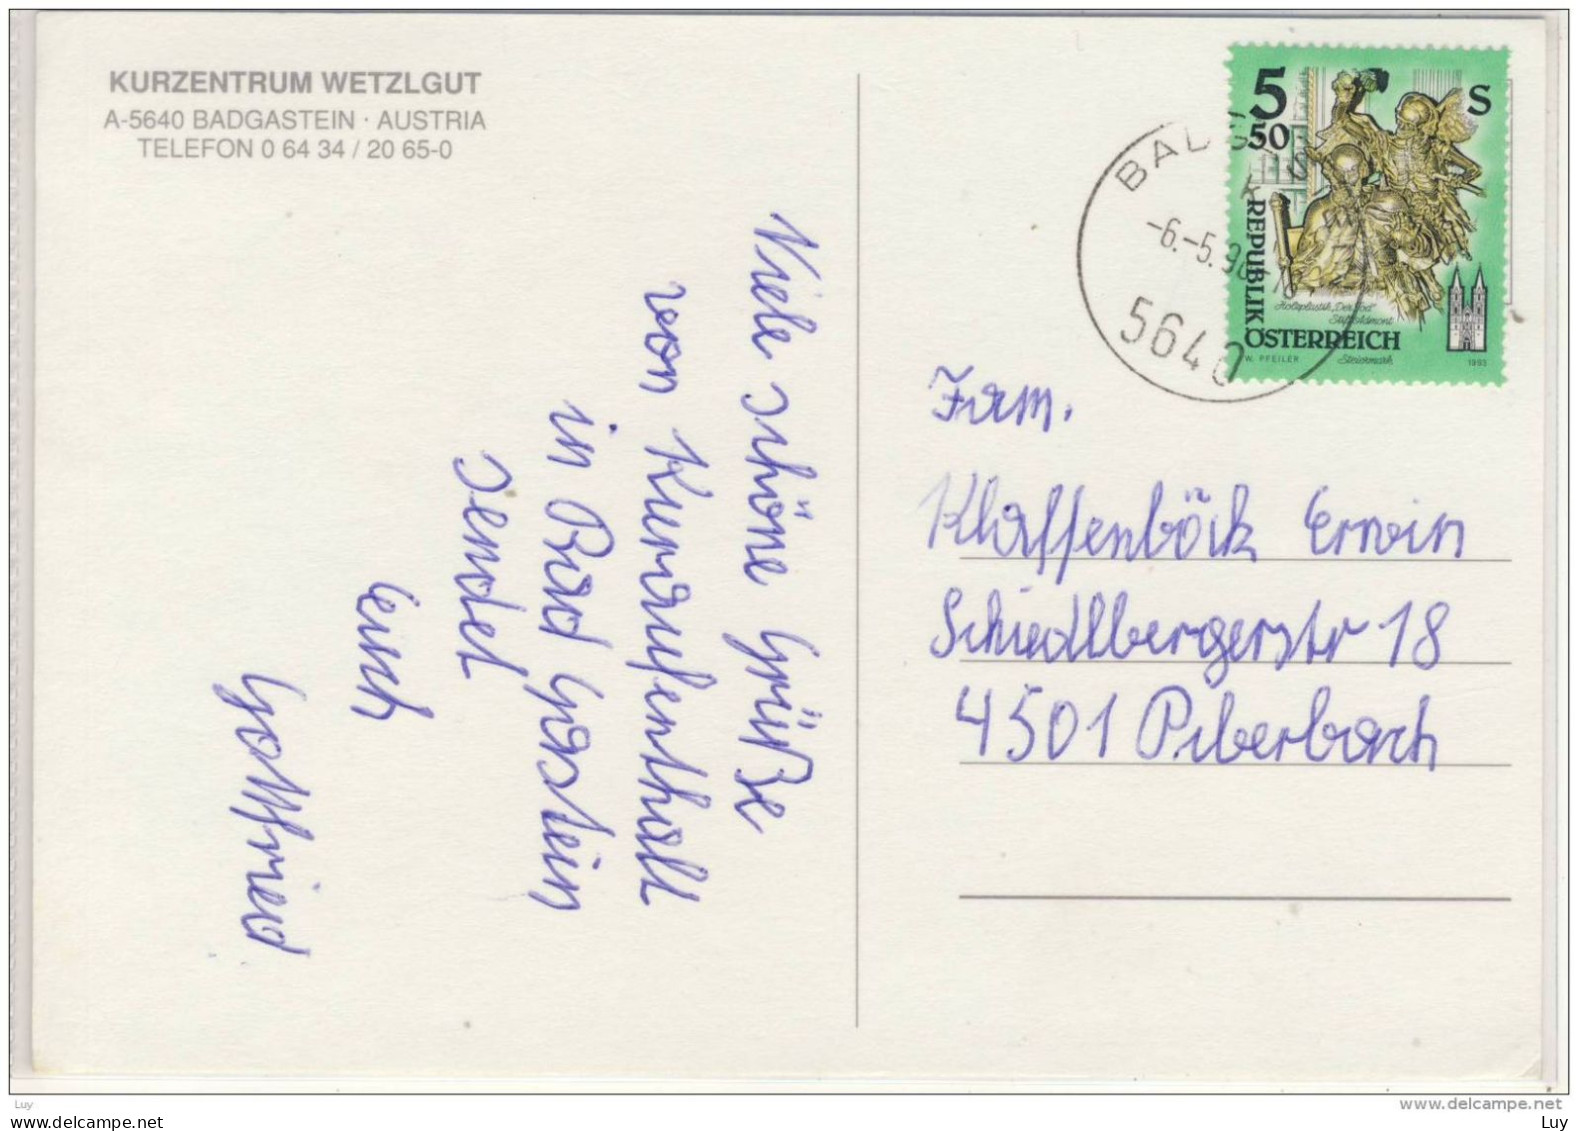 KURZENTRUM WETZLGUT
A-5640 BADGASTEIN · AUSTRIA
TELEFON 0 64 34 / 20 65-0
Viele schöne Grüße
von Kuraufenthalt
in Bad Gastein
sendet
Euch
Gottfried
5 S
50
REPUBLIK
ÖSTERREICH
Holzplastik „Der Tod"
Stift Admont
Steiermark
W. PFEILER
1993
-6.-5.96
5640
Fam.
Klaffenböck Erwin
Schiedlbergerstr 18
4501 Piberbach
Luy
www.delcampe.net
Luy
Luy